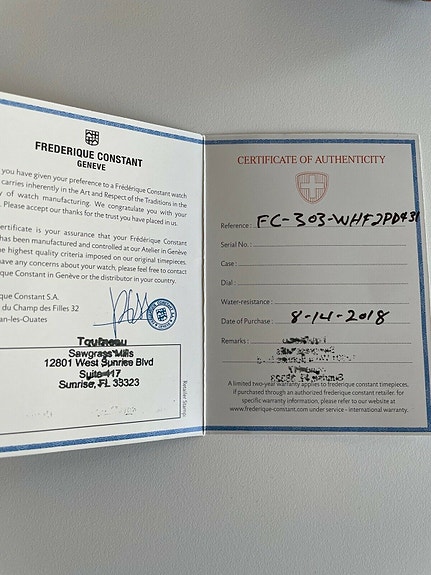 FREDERIQUE CONSTANT
GENEVE
you have given your preference to a Frédérique Constant watch
carries inherently in the Art and Respect of the Traditions in the
y of watch manufacturing. We congratulate you with your
. Please accept our thanks for the trust you have placed in us.
ertificate is your assurance that your Frédérique Constant
has been manufactured and controlled at our Atelier in Genève
he highest quality criteria imposed on our original timepieces.
have any concerns about your watch, please feel free to contact
que Constant in Genève or the distributor in your country.
que Constant S.A.
du Champ des Filles 32
an-les-Ouates
Tourneau
Sawgrass Mills
12801 West Sunrise Blvd
Suite 417
Sunrise, FL 33323
Retailer Stamp:
CERTIFICATE OF AUTHENTICITY
Reference: FC-303-WHF2PD431
Serial No.:
Case:
Dial:
Water-resistance:
Date of Purchase: 8-14-2018
Remarks:
A limited two-year warranty applies to frederique constant timepieces,
if purchased through an authorized frederique constant retailer. for
specific warranty information, please refer to our website at
www.frederique-constant.com under service - international warranty.